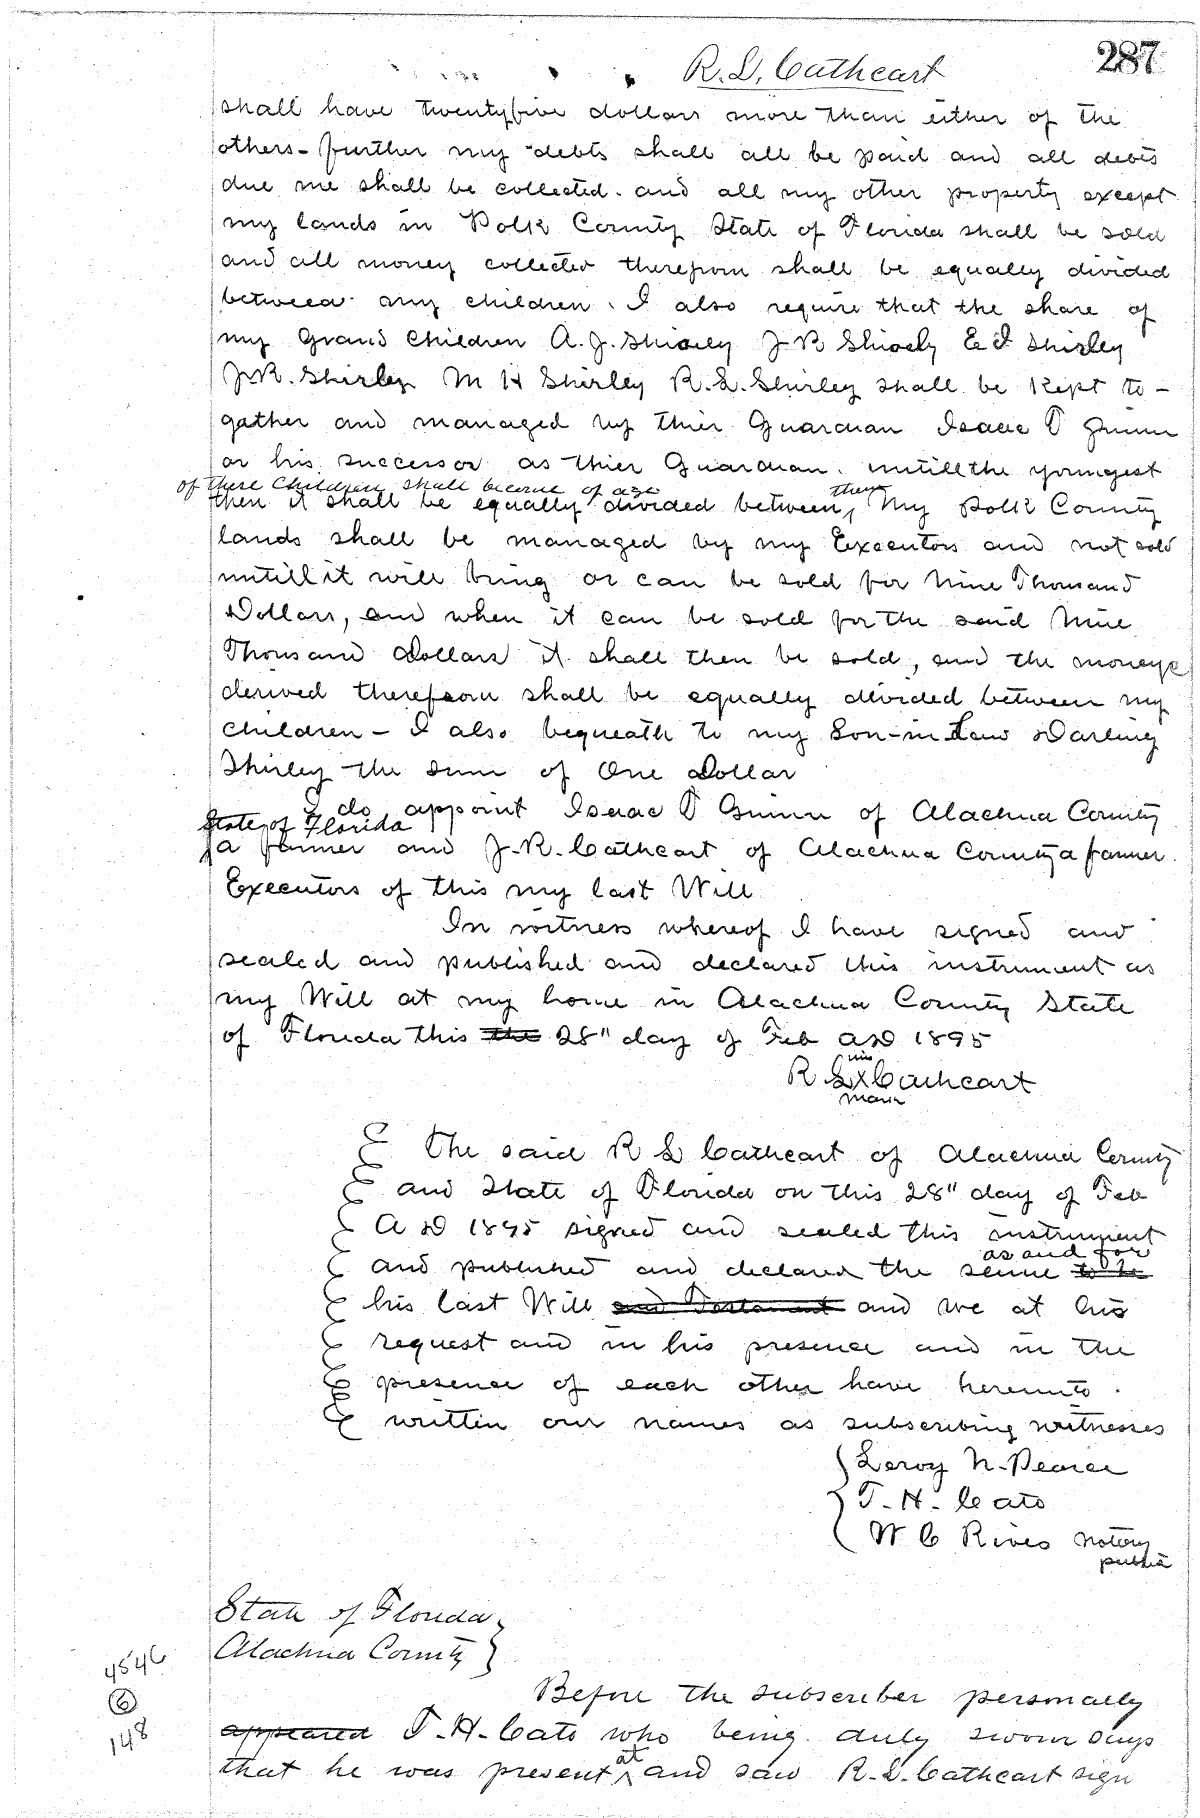 287
R. L. Cathcart
shall have twentyfive dollars more than either of the
others - further my debts shall all be paid and all debts
due me shall be collected. and all my other property except
my lands in Polk County State of Florida shall be sold
and all money collected therefrom shall be equally divided
between my children. I also require that the share of
my Grand Children A. J. Shirley J R Shirley E I Shirley
J. R. Shirley M H Shirley R. L. Shirley shall be kept to-
gather and managed by thier Guardian Isaac T Guinn
or his successor as thier Guardian. untill the youngest
of these Children shall become of age
then it shall be equally divided between them, My Polk County
lands shall be managed by my Executors and not sold
untill it will bring or can be sold for Nine Thousand
Dollars, and when it can be sold for the said Nine
Thousand Dollars it shall then be sold, and the moneys
derived therefrom shall be equally divided between my
children - I also bequeath to my Son-in Law Darling
Shirley the sum of One Dollar
I do appoint Isaac T Guinn of Alachua County
State of Florida
a farmer and J. R. Cathcart of Alachua County a farmer
Executors of this my last Will
In witness whereof I have signed and
sealed and published and declared this instrument as
my Will at my home in Alachua County State
of Florida this the 28" day of Feb AD 1895
his
R L x Cathcart
mark
The said R L Cathcart of Alachua County
and State of Florida on this 28" day of Feb
A D 1895 signed and sealed this instrument
as and for
and published and declared the same to be
his last Will and Testament and we at his
request and in his presence and in the
presence of each other have hereunto
written our names as subscribing witnesses
Leroy N. Pearce
T. H. Cato
W C Rives Notary
public
State of Florida
Alachua County
4546
6
148
Before the subscriber personally
appeared T. H. Cato who being duly sworn says
that he was present at and saw R. L. Cathcart sign